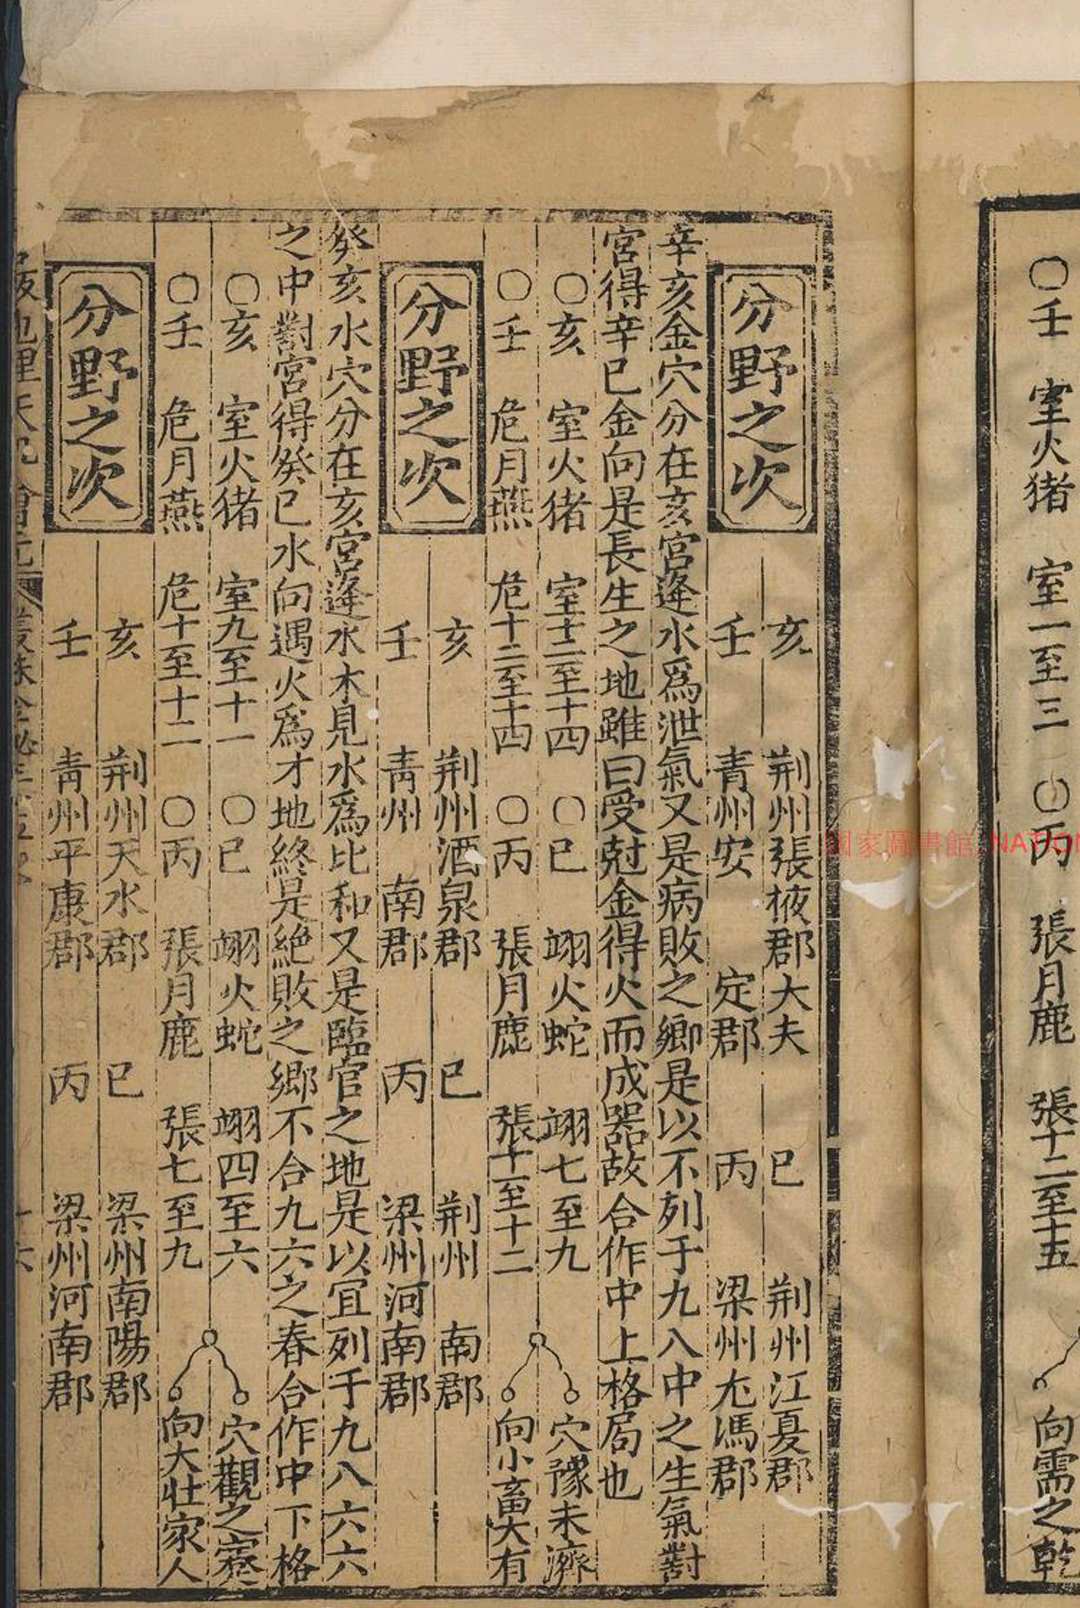 〇壬　室火猪　室一至三　〇丙　張月鹿　張十二至十五　向需之乾
國家圖書館 NATION
分野之次
亥　荆州張掖郡大夫　巳　荆州江夏郡
壬　青州安　定郡　丙　梁州尢馮郡
辛亥金穴分在亥宮逢水爲泄氣又是病敗之鄉是以不列于九八中之生氣對
宮得辛巳金向是長生之地雖曰受尅金得火而成器故合作中上格局也
〇亥　室火猪　室十二至十四　〇巳　翊火蛇　翊七至九　穴豫未濟
〇壬　危月燕　危十二至十四　〇丙　張月鹿　張十一至十二　向小畜大有
分野之次
亥　荆州酒泉郡　巳　荆州　南郡
壬　青州　南郡　丙　梁州河南郡
癸亥水穴分在亥宮逢水木見水爲比和又是臨官之地是以宜列于九八六六
之中對宮得癸巳水向遇火爲才地終是絶敗之鄉不合九六之春合作中下格
〇亥　室火猪　室九至十一　〇巳　翊火蛇　翊四至六　穴觀之蹇
〇壬　危月燕　危十至十二　〇丙　張月鹿　張七至九　向大壮家人
分野之次
亥　荆州天水郡　巳　梁州南陽郡
壬　青州平康郡　丙　梁州河南郡